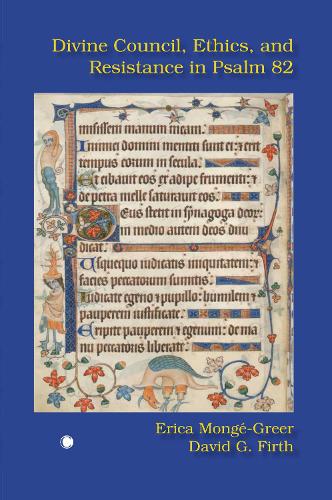 Divine Council, Ethics, and
Resistance in Psalm 82
misissem manum meam:
Inimici domini mentiti sunt ei: et erit
tempus eorum in secula.
Et cibauit eos ex adipe frumenti: et
de petra melle saturauit eos.
Deus stetit in synagoga deor:
in medio autem deos diiu
dicat.
Usquequo iudicatis iniquitatem: et
facies peccatorum sumitis.
Iudicate egeno et pupillo: humilem et
pauperem iustificate.
Eripite pauperem et egenum: de ma
nu peccatoris liberate.
Erica Mongé-Greer
David G. Firth